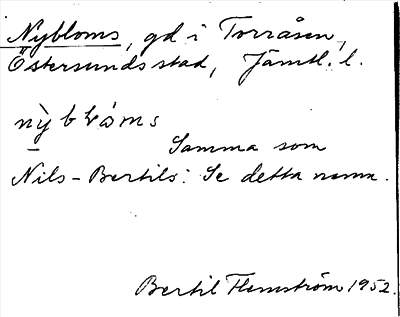 Nybloms, gd i Torråsen,
Östersunds stad, Jämtl. l.
nỳblóms
Samma som
Nils-Bertils: Se detta namn.
Bertil Flemström 1952.